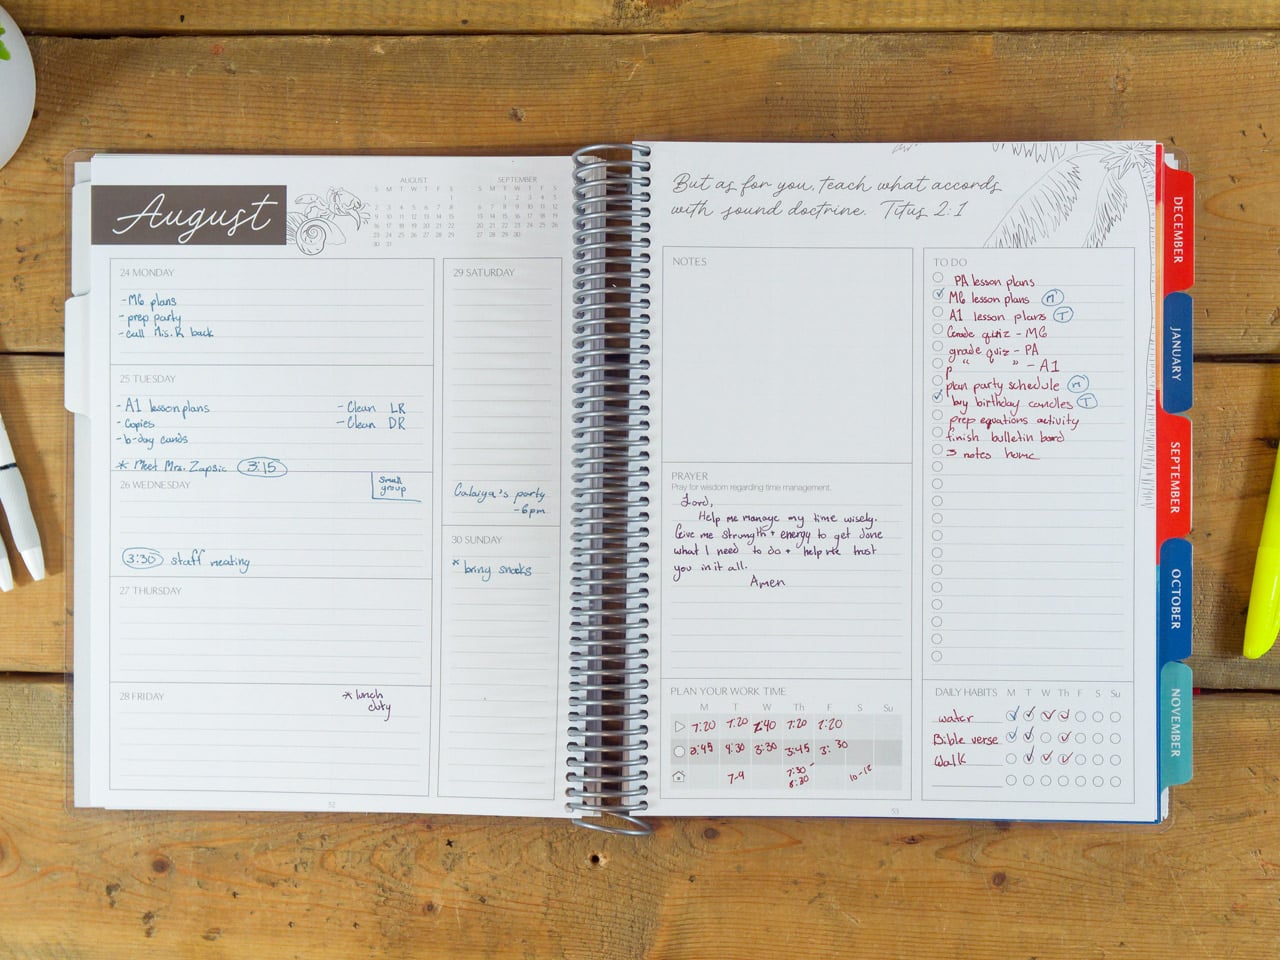 August
AUGUST
S M T W T F S
1
2 3 4 5 6 7 8
9 10 11 12 13 14 15
16 17 18 19 20 21 22
23 24 25 26 27 28 29
30 31
SEPTEMBER
S M T W T F S
1 2 3 4 5
6 7 8 9 10 11 12
13 14 15 16 17 18 19
20 21 22 23 24 25 26
27 28 29 30
24 MONDAY
- M6 plans
- prep party
- call Mis. R back
25 TUESDAY
- A1 lesson plans
- Copies
- b-day cards
- Clean LR
- Clean DR
* Meet Mrs. Zapsic 3:15
26 WEDNESDAY
Small
group
3:30 staff meeting
27 THURSDAY
28 FRIDAY
* lunch
duty
29 SATURDAY
party
- 6pm
30 SUNDAY
* bring snacks
52
But as for you, teach what accords
with sound doctrine. Titus 2:1
NOTES
PRAYER
Pray for wisdom regarding time management.
Lord,
Help me manage my time wisely.
Give me strength + energy to get done
what I need to do + help me trust
you in it all.
Amen
PLAN YOUR WORK TIME
M T W Th F S Su
7:20 7:20 7:40 7:20 7:20
3:45 4:30 3:30 3:45 3:30
7-9 7:30-
8:30 10-12
TO DO
PA lesson plans
M6 lesson plans M
A1 lesson plans T
Grade quiz - M6
grade quiz - PA
" " - A1
plan party schedule M
buy birthday candles T
prep equations activity
finish bulletin board
3 notes home
DAILY HABITS M T W Th F S Su
water
Bible verse
Walk
53
DECEMBER
JANUARY
SEPTEMBER
OCTOBER
NOVEMBER